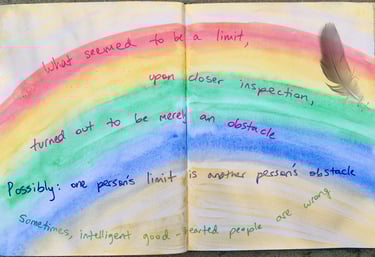 What seemed to be a limit,
upon closer inspection,
turned out to be merely an obstacle
Possibly: one person's limit is another person's obstacle
Sometimes, intelligent good-hearted people are wrong